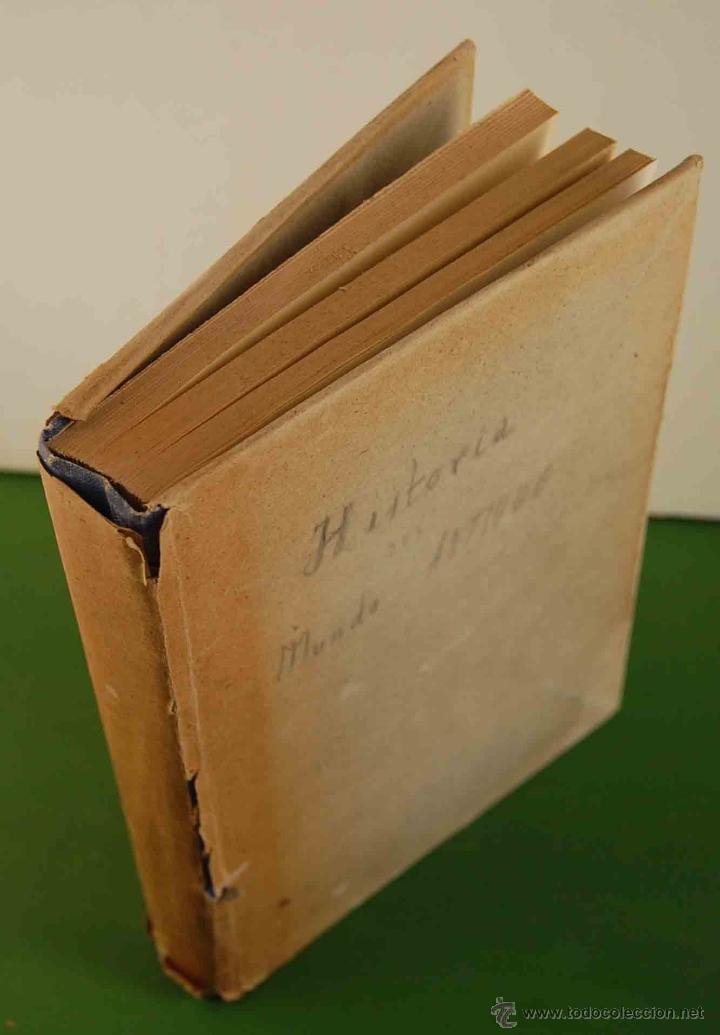 Historia
Mundo Antiguo
www.todocoleccion.net